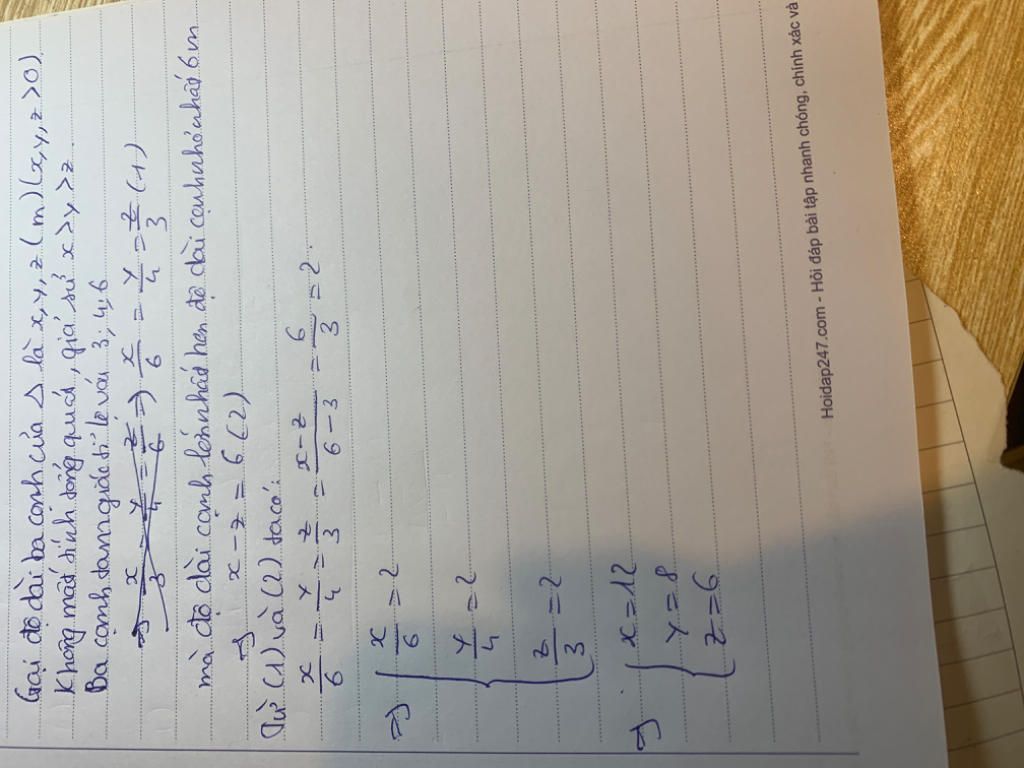 Gọi độ dài ba cạnh của Δ là x, y, z (m) (x, y, z > 0)
Không mất tính tổng quát, giả sử x > y > z.
Ba cạnh tam giác tỉ lệ với 3; 4; 6
=> x/3 = y/4 = z/6 => x/6 = y/4 = z/3 (1)
mà độ dài cạnh lớn nhất hơn độ dài cạnh nhỏ nhất 6 m
=> x - z = 6 (2)
Từ (1) và (2) ta có:
x/6 = y/4 = z/3 = x-z/6-3 = 6/3 = 2.
=> { x/6 = 2
y/4 = 2
z/3 = 2
=> { x = 12
y = 8
z = 6
Hoidap247.com - Hỏi đáp bài tập nhanh chóng, chính xác và